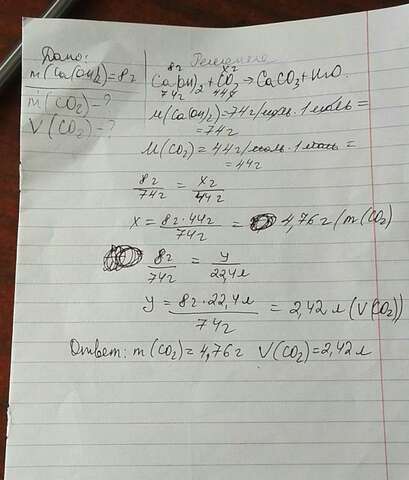 Дано:
m(Ca(OH)2)=8г
m(CO2)-?
V(CO2)-?
Решение
8г xг
Ca(OH)2+CO2→CaCO3+H2O.
74г 44г
M(Ca(OH)2)=74г/моль·1моль=
=74г
M(CO2)=44г/моль·1моль=
=44г
8г/74г = xг/44г
x=8г·44г/74г = 4,76г/(m(CO2)
8г/74г = y/22,4л
y=8г·22,4л/74г = 2,42л(V(CO2))
Ответ: m(CO2)=4,76г V(CO2)=2,42л